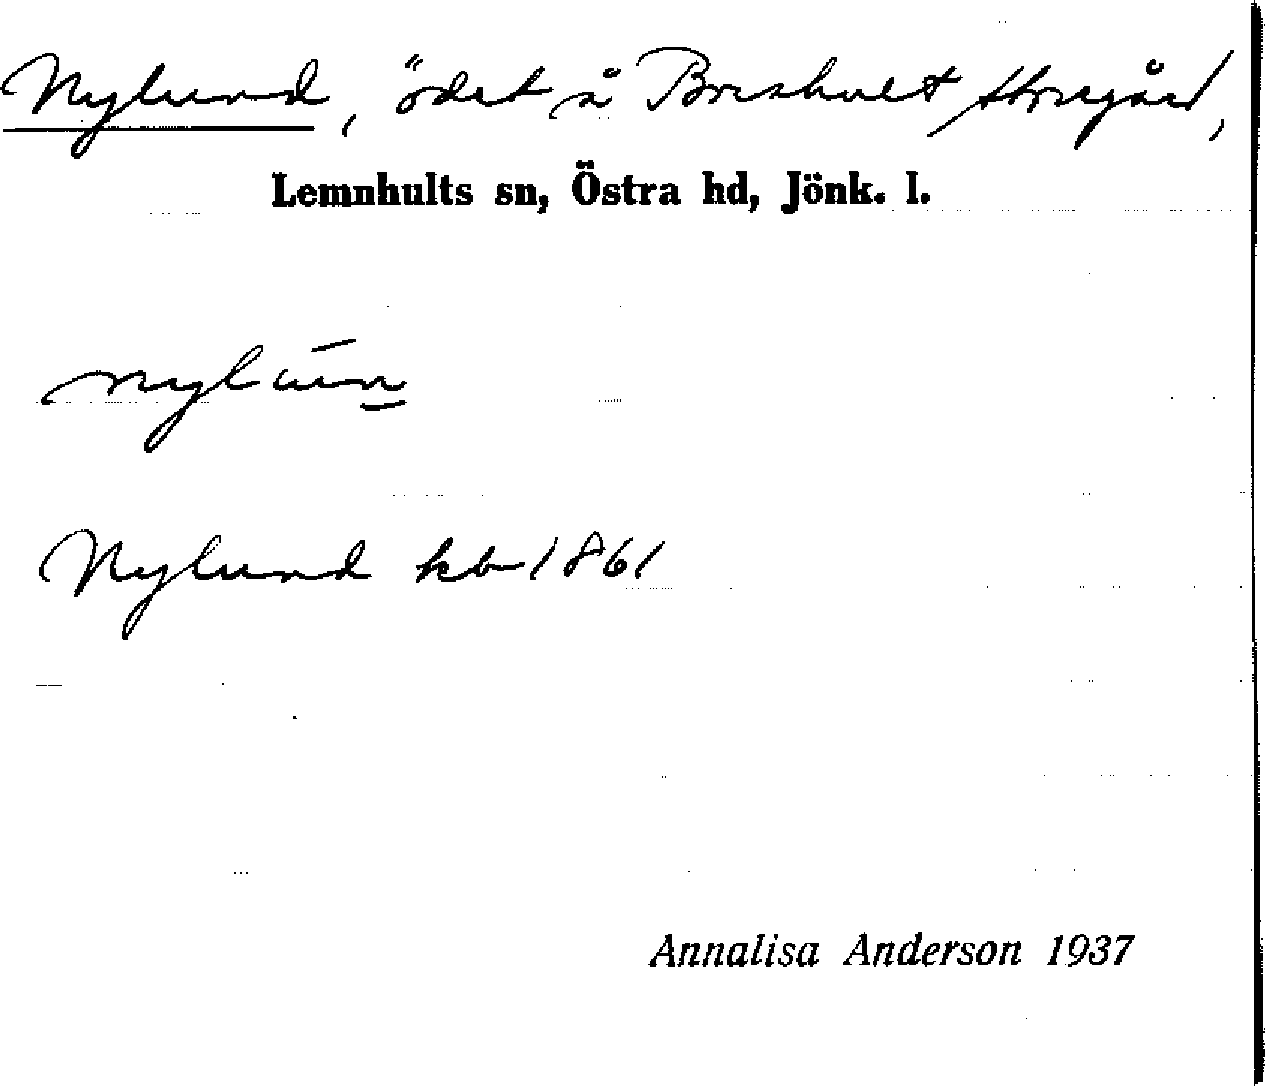 Nylund, ödet å Boeshult Storegård,
Lemnhults sn, Östra hd, Jönk. l.
nylun
Nylund kb 1861
Annalisa Anderson 1937